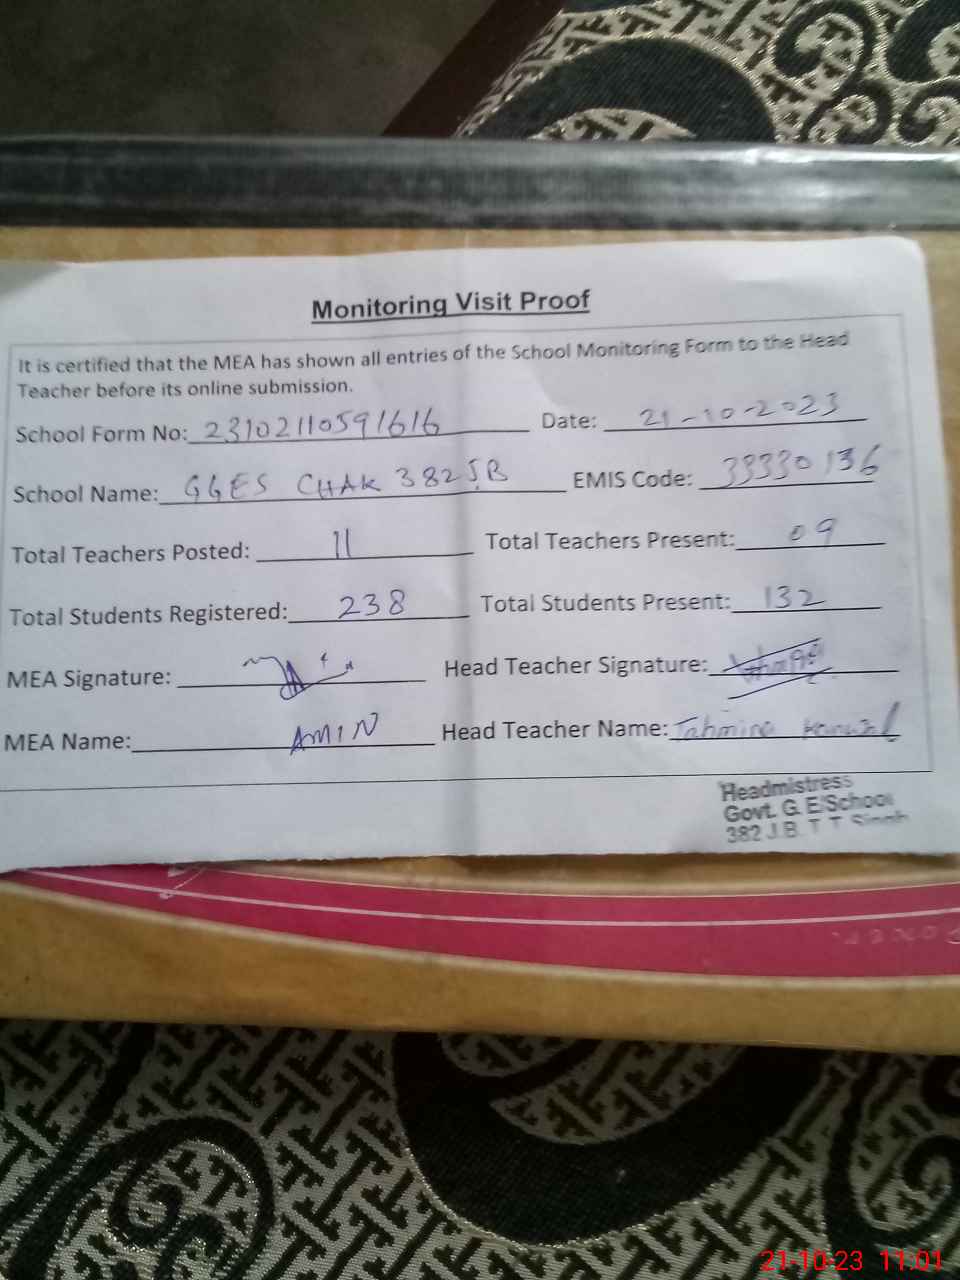 Monitoring Visit Proof
It is certified that the MEA has shown all entries of the School Monitoring Form to the Head
Teacher before its online submission.
School Form No: 23102110591616 Date: 21-10-2023
School Name: GGES CHAK 382 JB EMIS Code: 33330136
Total Teachers Posted: 11 Total Teachers Present: 09
Total Students Registered: 238 Total Students Present: 132
MEA Signature: Head Teacher Signature:
MEA Name: AMIN Head Teacher Name: Tahmina Kanwal
Headmistress
Govt. G. E/School
382 J.B. T T Singh
21-10-23 11:01